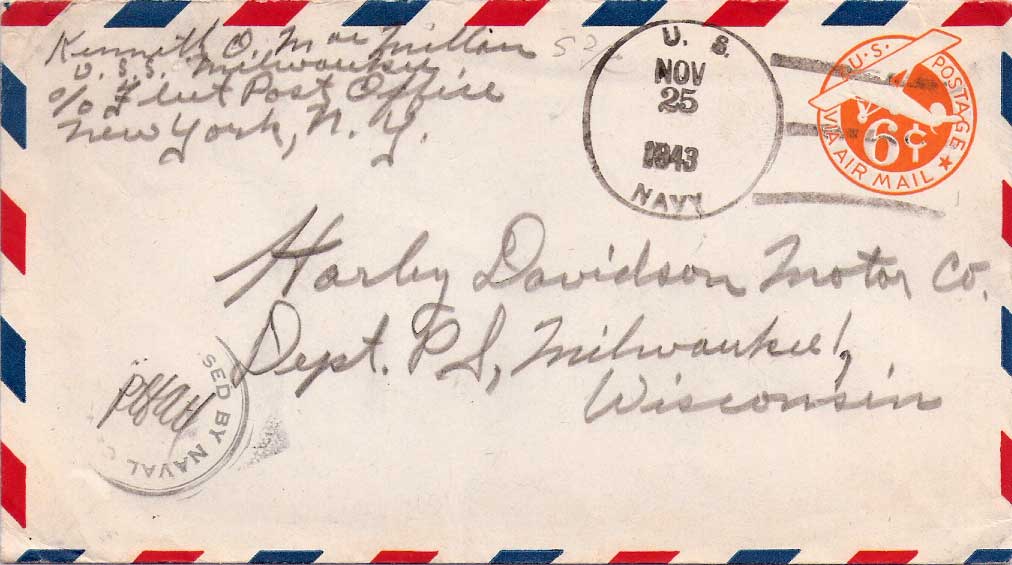 Kenneth O. MacMillan
U.S.S. Milwaukee
c/o Fleet Post Office
New York, N. Y.
U. S.
NOV
25
1943
NAVY
U.S. POSTAGE
6¢
VIA AIR MAIL
Harley Davidson Motor Co.
Dept. PS, Milwaukee 1,
Wisconsin
SED BY NAVAL